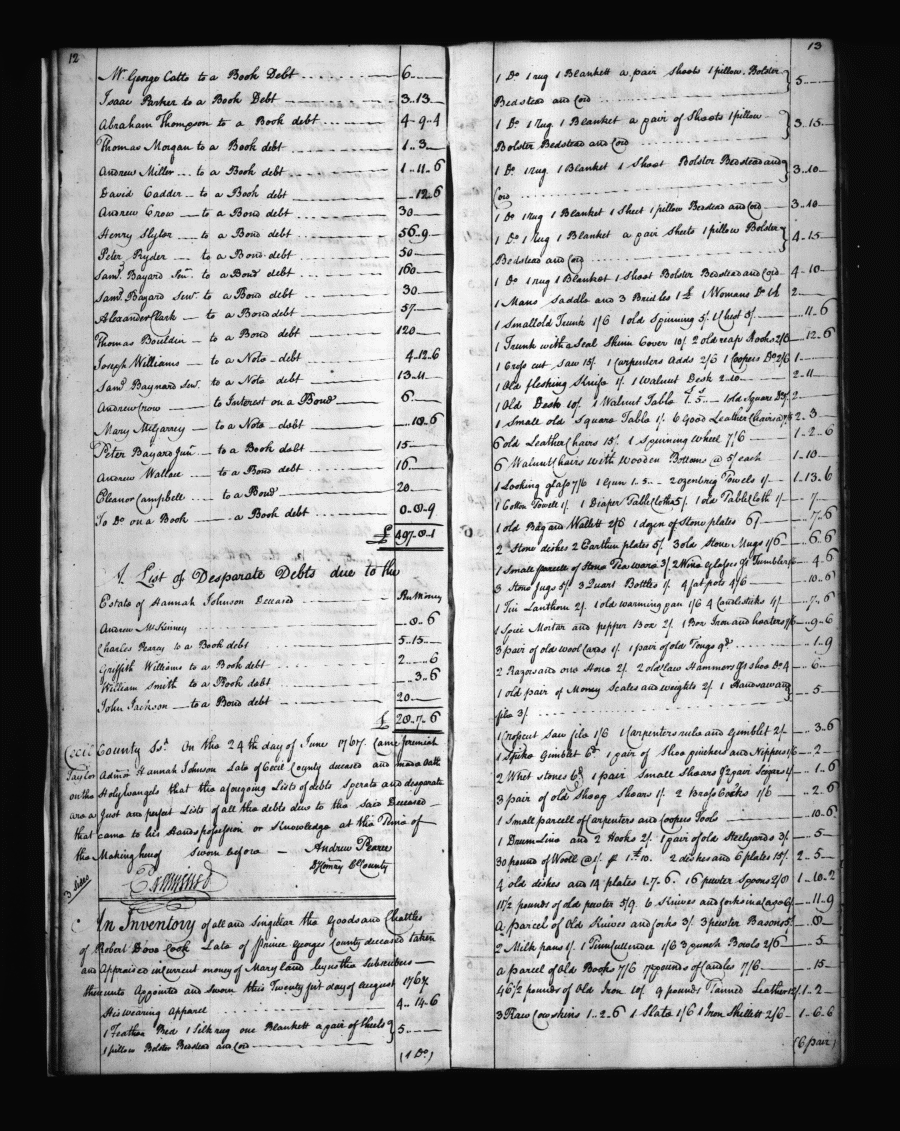 12
Mr. George Catto to a Book Debt 6
Isaac Parker to a Book Debt 3..13
Abraham Thompson to a Book debt 4..9..4
Thomas Morgan to a Book debt 1..3
Andrew Miller to a Book debt 1..11..6
David Cadder to a Book debt ..12..6
Andrew Crow to a Bond debt 30
Henry Slytor to a Bond debt 56..9
Peter Pryder to a Bond debt 50
Saml. Bayard Senr. to a Bond debt 160
Saml. Bayard Senr. to a Bond debt 30
Alexander Clark to a Bond debt 57
Thomas Bouldin to a Bond debt 120
Joseph Williams to a Note debt 4..12..6
Saml. Baynard Senr. to a Note debt 13..11
Andrew Crow to Interest on a Bond 6
Mary McGarrey to a Note debt ..10..6
Peter Bayard Junr. to a Book debt 15
Andrew Wallace to a Bond debt 16
Eleanor Campbell to a Bond 20
To Do on a Book a Book debt 0..0..9
A List of Desparate Debts due to the
Estate of Hannah Johnson Deceased
Andrew McKinney ..0..6
Charles Pearcy to a Book debt 5..15
Griffith Williams to a Book debt 2..6
William Smith to a Book debt ..3..6
John Jackson to a Bond debt 20
£ 28..7..6
Cecil County Sst. On the 24th day of June 1767. Came Jeremiah
Taylor Admor Hannah Johnson Late of Cecil County deceased and made Oath
on the Holy Evangels that the aforegoing Lists of debts Sperate and desparate
are a Just and perfect Lists of all the debts due to the Said Deceased
that came to his Hands possession or Knowledge at the Time of
the Making hereof Sworn before Andrew Pearce
DComry Cl County
3 sides
An Inventory of all and Singular the Goods and Chattles
of Robert Dove Cook Late of Prince Georges County deceased taken
and Appraised in Current money of Maryland by us the Subscribers
thereunto Appointed and Sworn this Twenty first day of August 1767.
His wearing Apparel 4..14..6
1 Feather Bed 1 Silk rug one Blankett a pair of Sheets 5
1 pillow Bolster Bedstead and Cord
(1 Do.)
13
1 Do 1 rug 1 Blankett a pair Sheets 1 pillow Bolster 5
Bedstead and Cord
1 Do 1 Rug 1 Blanket a pair of Sheets 1 pillow 3..15
Bolster Bedstead and Cord
1 Do 1 Rug 1 Blanket 1 Sheet Bolster Bedstead and 3..10
Cord
1 Do 1 Rug 1 Blanket 1 Sheet 1 pillow Bedstead and Cord 3..10
1 Do 1 Rug 1 Blanket a pair Sheets 1 pillow Bolster 4..15
Bedstead and Cord
1 Do 1 rug 1 Blanket 1 Sheet Bolster Bedstead and Cord 4..10
1 Mans Saddle and 3 Bridles 1 Womans Do 2
1 Small old Trunk 1/6 1 old Spinning 5/ 1 Chest 5/ ..11..6
1 Trunk with a Seal Skin Cover 10/ 2 old reap Hooks ..12..6
1 Cross cut Saw 15/ 1 Carpenters Adds 2/6 1 Coopers Do 2/6 1
1 Old fleshing Knife 1/ 1 Walnut Desk 2..10 2..11
1 Old Desk 10/ 1 Walnut Table 1..5 1 old Square Do 2
1 Small old Square Table 1/ 6 Good Leather Chairs 2..3
6 old Leather Chairs 15/ 1 Spinning Wheel 7/6 1..2..6
6 Walnut Chairs with Wooden Bottoms @ 5/ each 1..10
1 Looking glass 7/6 1 Gun 1..5 Towels 1/ 1..13..6
1 Cotton Towell 1/ 1 Diaper Table Cloth 5/ 1 old Table Cloth 1/ 7
1 old Bag and Wallett 2/6 1 dozen of Stone plates ..7..6
2 Stone dishes 2 Earthen plates 5/ 3 old Stone Mugs 1/6 6..6
1 Small parcell of Stone Tea ware 3/ 2 Wine glasses 4..6
3 Stone Jugs 5/ 3 Quart Bottles 1/ 4 fat pots 4/6 ..10..6
1 Tin Lanthorn 2/ 1 old warming pan 1/6 4 Candlesticks 4/ ..7..6
1 Spice Mortar and pepper Box 2/ 1 Box Iron and heaters ..9..6
3 pair of old wool Cards 1/ 1 pair of old Tongs 9d ..1..9
2 Razors and one Hone 2/ 2 old Claw Hammers 6
1 old pair of Money Scales and weights 2/ 1 Handsaw and 5
file 3/
1 Crosscut Saw file 1/6 1 Carpenters rule and Gimblet 2/ 3..6
1 Spike Gimblet 6d 1 pair of Shoe pinchers and Nippers 1/6 2
2 Whet stones 6d 1 pair Small Shears 1..6
3 pair of old Sheep Shears 1/ 2 Brass Cocks 1/6 ..2..6
1 Small parcell of Carpenters and Coopers Tools ..10..6
1 Drum Line and 2 Hooks 2/ 1 pair of old Steelyards 3/ 5
30 pound of Wooll @ 1/ 1..10. 2 dishes and 6 plates 15/ 2..5
4 old dishes and 14 plates 1..7..6. 16 pewter Spoons 2/8 1..10..2
11 1/2 pounds of old pewter 5/9 6 Knives and forks in a Case 6/ ..11..9
a parcel of Old Knives and forks 3/ 3 pewter Basons 5/ 8
2 Milk pans 1/ 1 Tinn Cullender 1/6 3 punch Bowls 2/6 5
a parcel of Old Books 7/6 pounds of Candles 7/6 15
46 1/2 pounds of Old Iron 10/ 9 pounds Tanned Leather 12/ 1..2
3 Raw Cowskins 1..2..6 1 Slate 1/6 1 Iron Skillett 2/6 1..6..6
(6 pair)